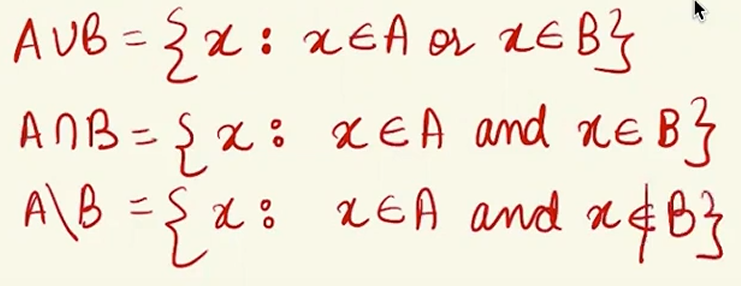 A∪B = {x : x∈A or x∈B}
A∩B = {x : x∈A and x∈B}
A\B = {x : x∈A and x∉B}